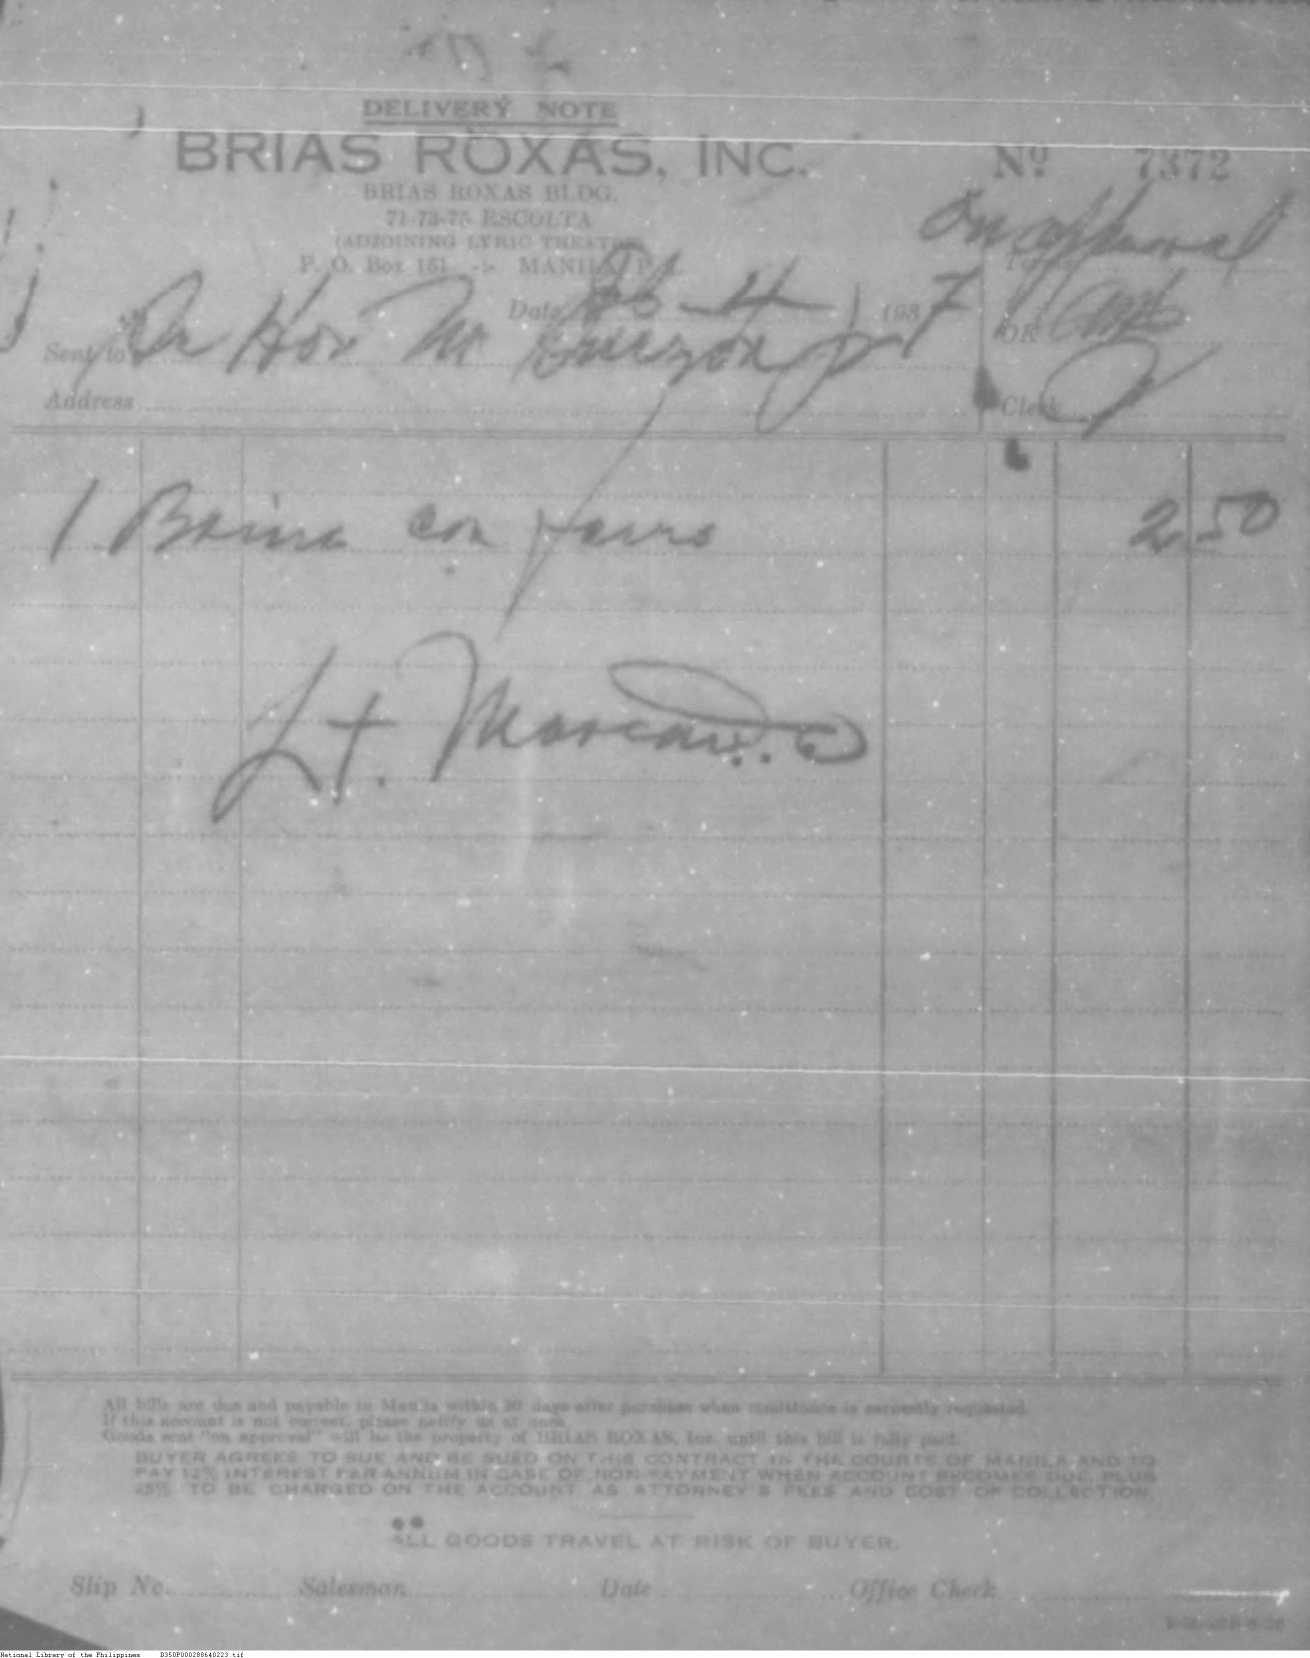 DELIVERY NOTE
BRIAS ROXAS, INC.
Nº 7372
BRIAS ROXAS BLDG.
71-73-75 ESCOLTA
(ADJOINING LYRIC THEATRE)
P. O. Box 151 -:- MANILA, P. I.
On approval
Date 4 1937
OR
Sent to Hon M Quezon Jr
Address
Clerk
1 Boina con 2 50
Lt.
All bills are due and payable in Manila within 30 days after purchase when remittance is earnestly requested.
If this account is not correct, please notify us at once.
Goods sent "on approval" will be the property of BRIAS ROXAS, Inc. until this bill is fully paid.
BUYER AGREES TO SUE AND BE SUED ON THIS CONTRACT IN THE COURTS OF MANILA AND TO
PAY 12% INTEREST PER ANNUM IN CASE OF NON-PAYMENT WHEN ACCOUNT BECOMES DUE, PLUS
25% TO BE CHARGED ON THE ACCOUNT AS ATTORNEY'S FEES AND COST OF COLLECTION.
ALL GOODS TRAVEL AT RISK OF BUYER.
Slip No. Salesman Date Office Check
National Library of the Philippines D350P000288640223.tif